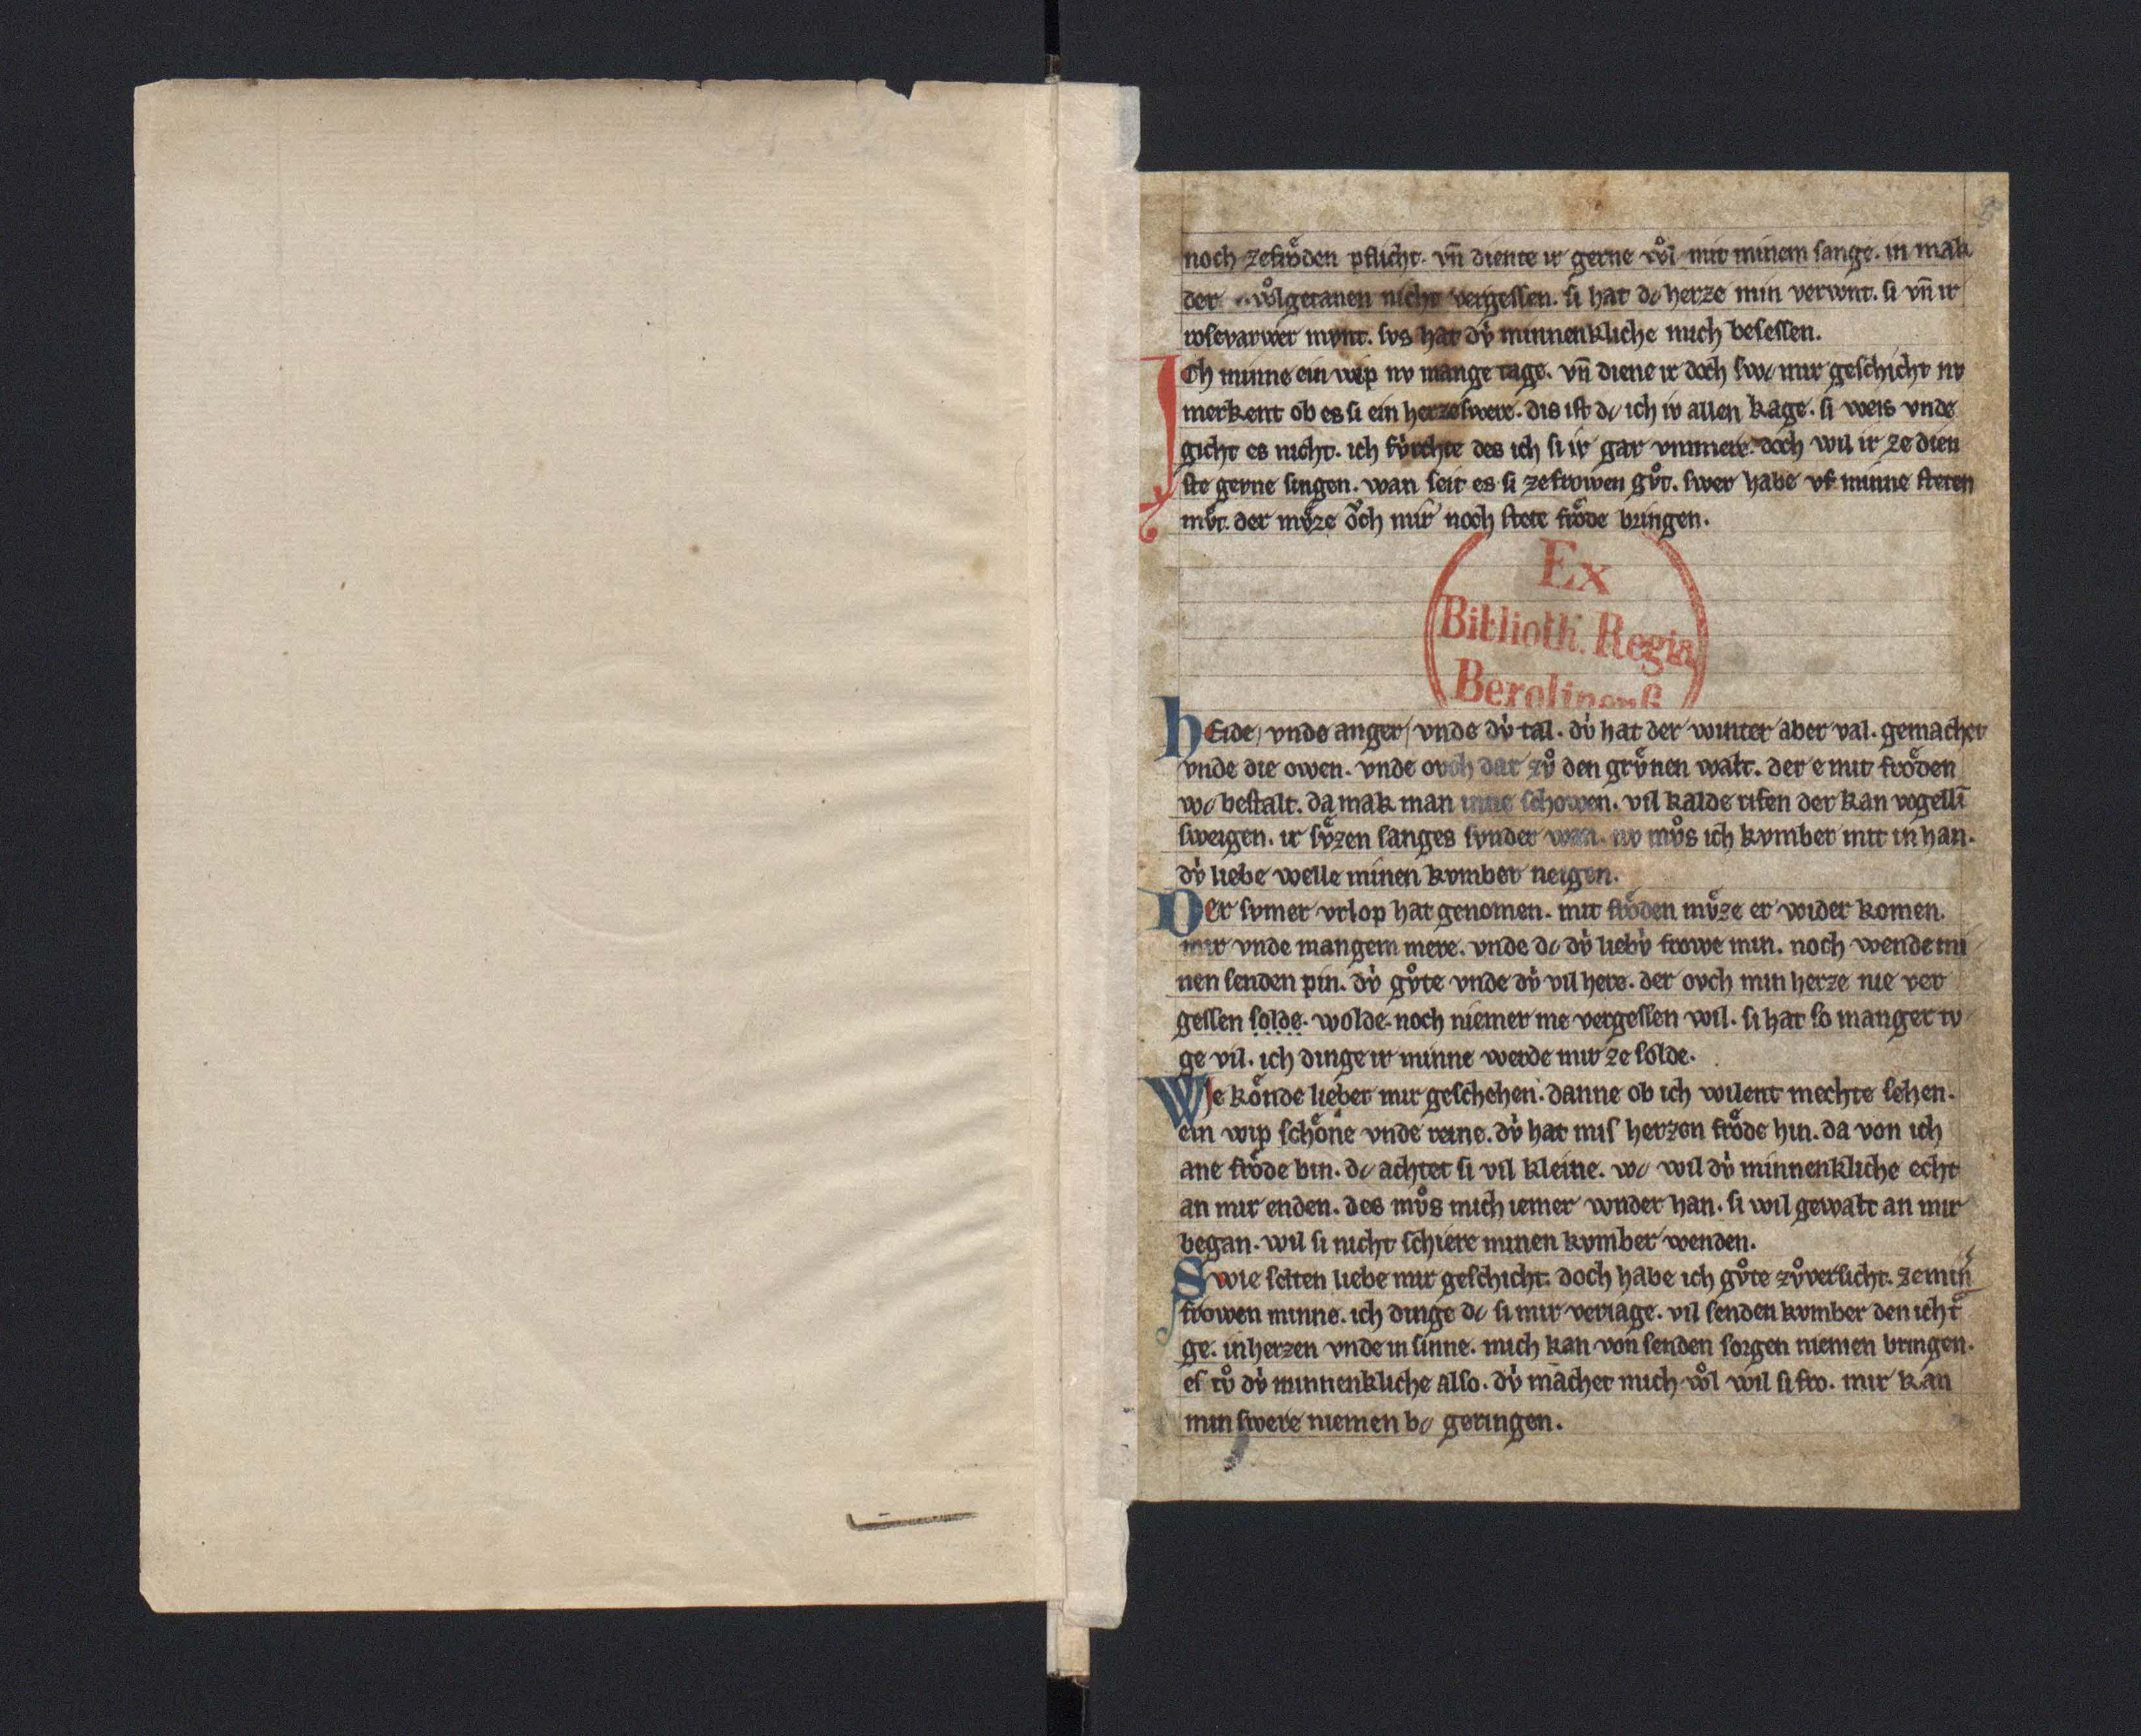 noch zefrǒden pflicht. vn̄ diente ir gerne wol mit minem sange. in mak
der wolgetanen nicht vergessen. si hat dc herze min verwnt. si vn̄ ir
rosevarwer mvnt. svs hat dv̍ minnenkliche mich besessen.
Ich minne ein wip nv mange tage. vn̄ diene ir doch swc mir geschicht nv
merkent ob es si ein herzeswere. dis ist dc ich iv allen klage. si weis vnde
gicht es nicht. ich fv̍rchte des ich si ir gar vnmere. doch wil ir ze dien
ste gerne singen. wan seit es si zefrowen gv̊t. swer habe vf minne steten
mv̊t. der mv̊ze och mir noch stete frǒde bringen.
Ex
Biblioth. Regia
Berolinens.
hEide vnde anger vnde dv̍ tal. dv̍ hat der winter aber val. gemachet
vnde die owen. vnde ovch dar zv̊ den grv̊nen walt. der e mit frǒden
wc bestalt. da mak man inne schowen. vil kalde rifen der kan vogelli̅
sweigen. ir sv̊zen sanges svnder wan. nv mv̊s ich kvmber mit in han.
dv̍ liebe welle minen kvmber neigen.
Der svmer vrlop hat genomen. mit frǒden mv̊ze er wider komen.
mir vnde mangem mere. vnde dc dv̍ liebv̍ frowe min. noch wende mi
nen senden pin. dv̍ gv̊te vnde dv̍ vil here. der ovch min herze nie ver
gessen solde. wolde. noch niemer me vergessen wil. si hat so manger tv
ge vil. ich dinge ir minne werde mir ze solde.
Wie kǒnde lieber mir geschehen. danne ob ich wilent mechte sehen.
ein wip schǒne vnde reine. dv̍ hat mis herzen frǒde hin. da von ich
ane frǒde bin. dc achtet si vil kleine. wc wil dv̍ minnenkliche echt
an mir enden. des mv̊s mich iemer wnder han. si wil gewalt an mir
began. wil si nicht schiere minen kvmber wenden.
Swie selten liebe mir geschicht. doch habe ich gv̊te zv̊versicht. ze min̅
frowen minne. ich dinge dc si mir veriage. vil senden kvmber den ich t̊
ge. in herzen vnde in sinne. mich kan von senden sorgen niemen bringen.
es tv̊ dv̍ minnenkliche also. dv̍ machet mich wol wil si fro. mir kan
min swere niemen bc geringen.